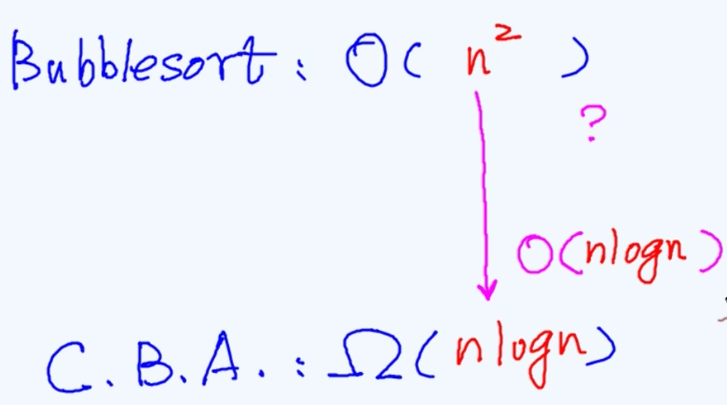 Bubblesort : O( n² )
?
O(nlogn)
C.B.A. : Ω(nlogn)